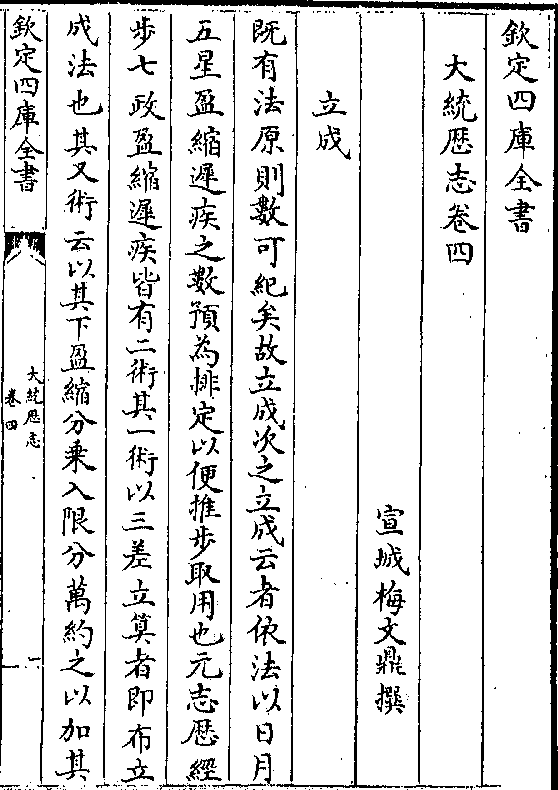 欽定四庫全書
大統歴志卷四
宣城梅文鼎撰
立成
既有法原則數可紀矣故立成次之立成云者依法以日月
五星盈縮遲疾之數預為排定以便推步取用也元志歴經
步七政盈縮遲疾皆有二術其一術以三差立算者即布立
成法也其又術云以其下盈縮分乘入限分萬約之以加其
欽定四庫全書
大統歴志
卷四
一